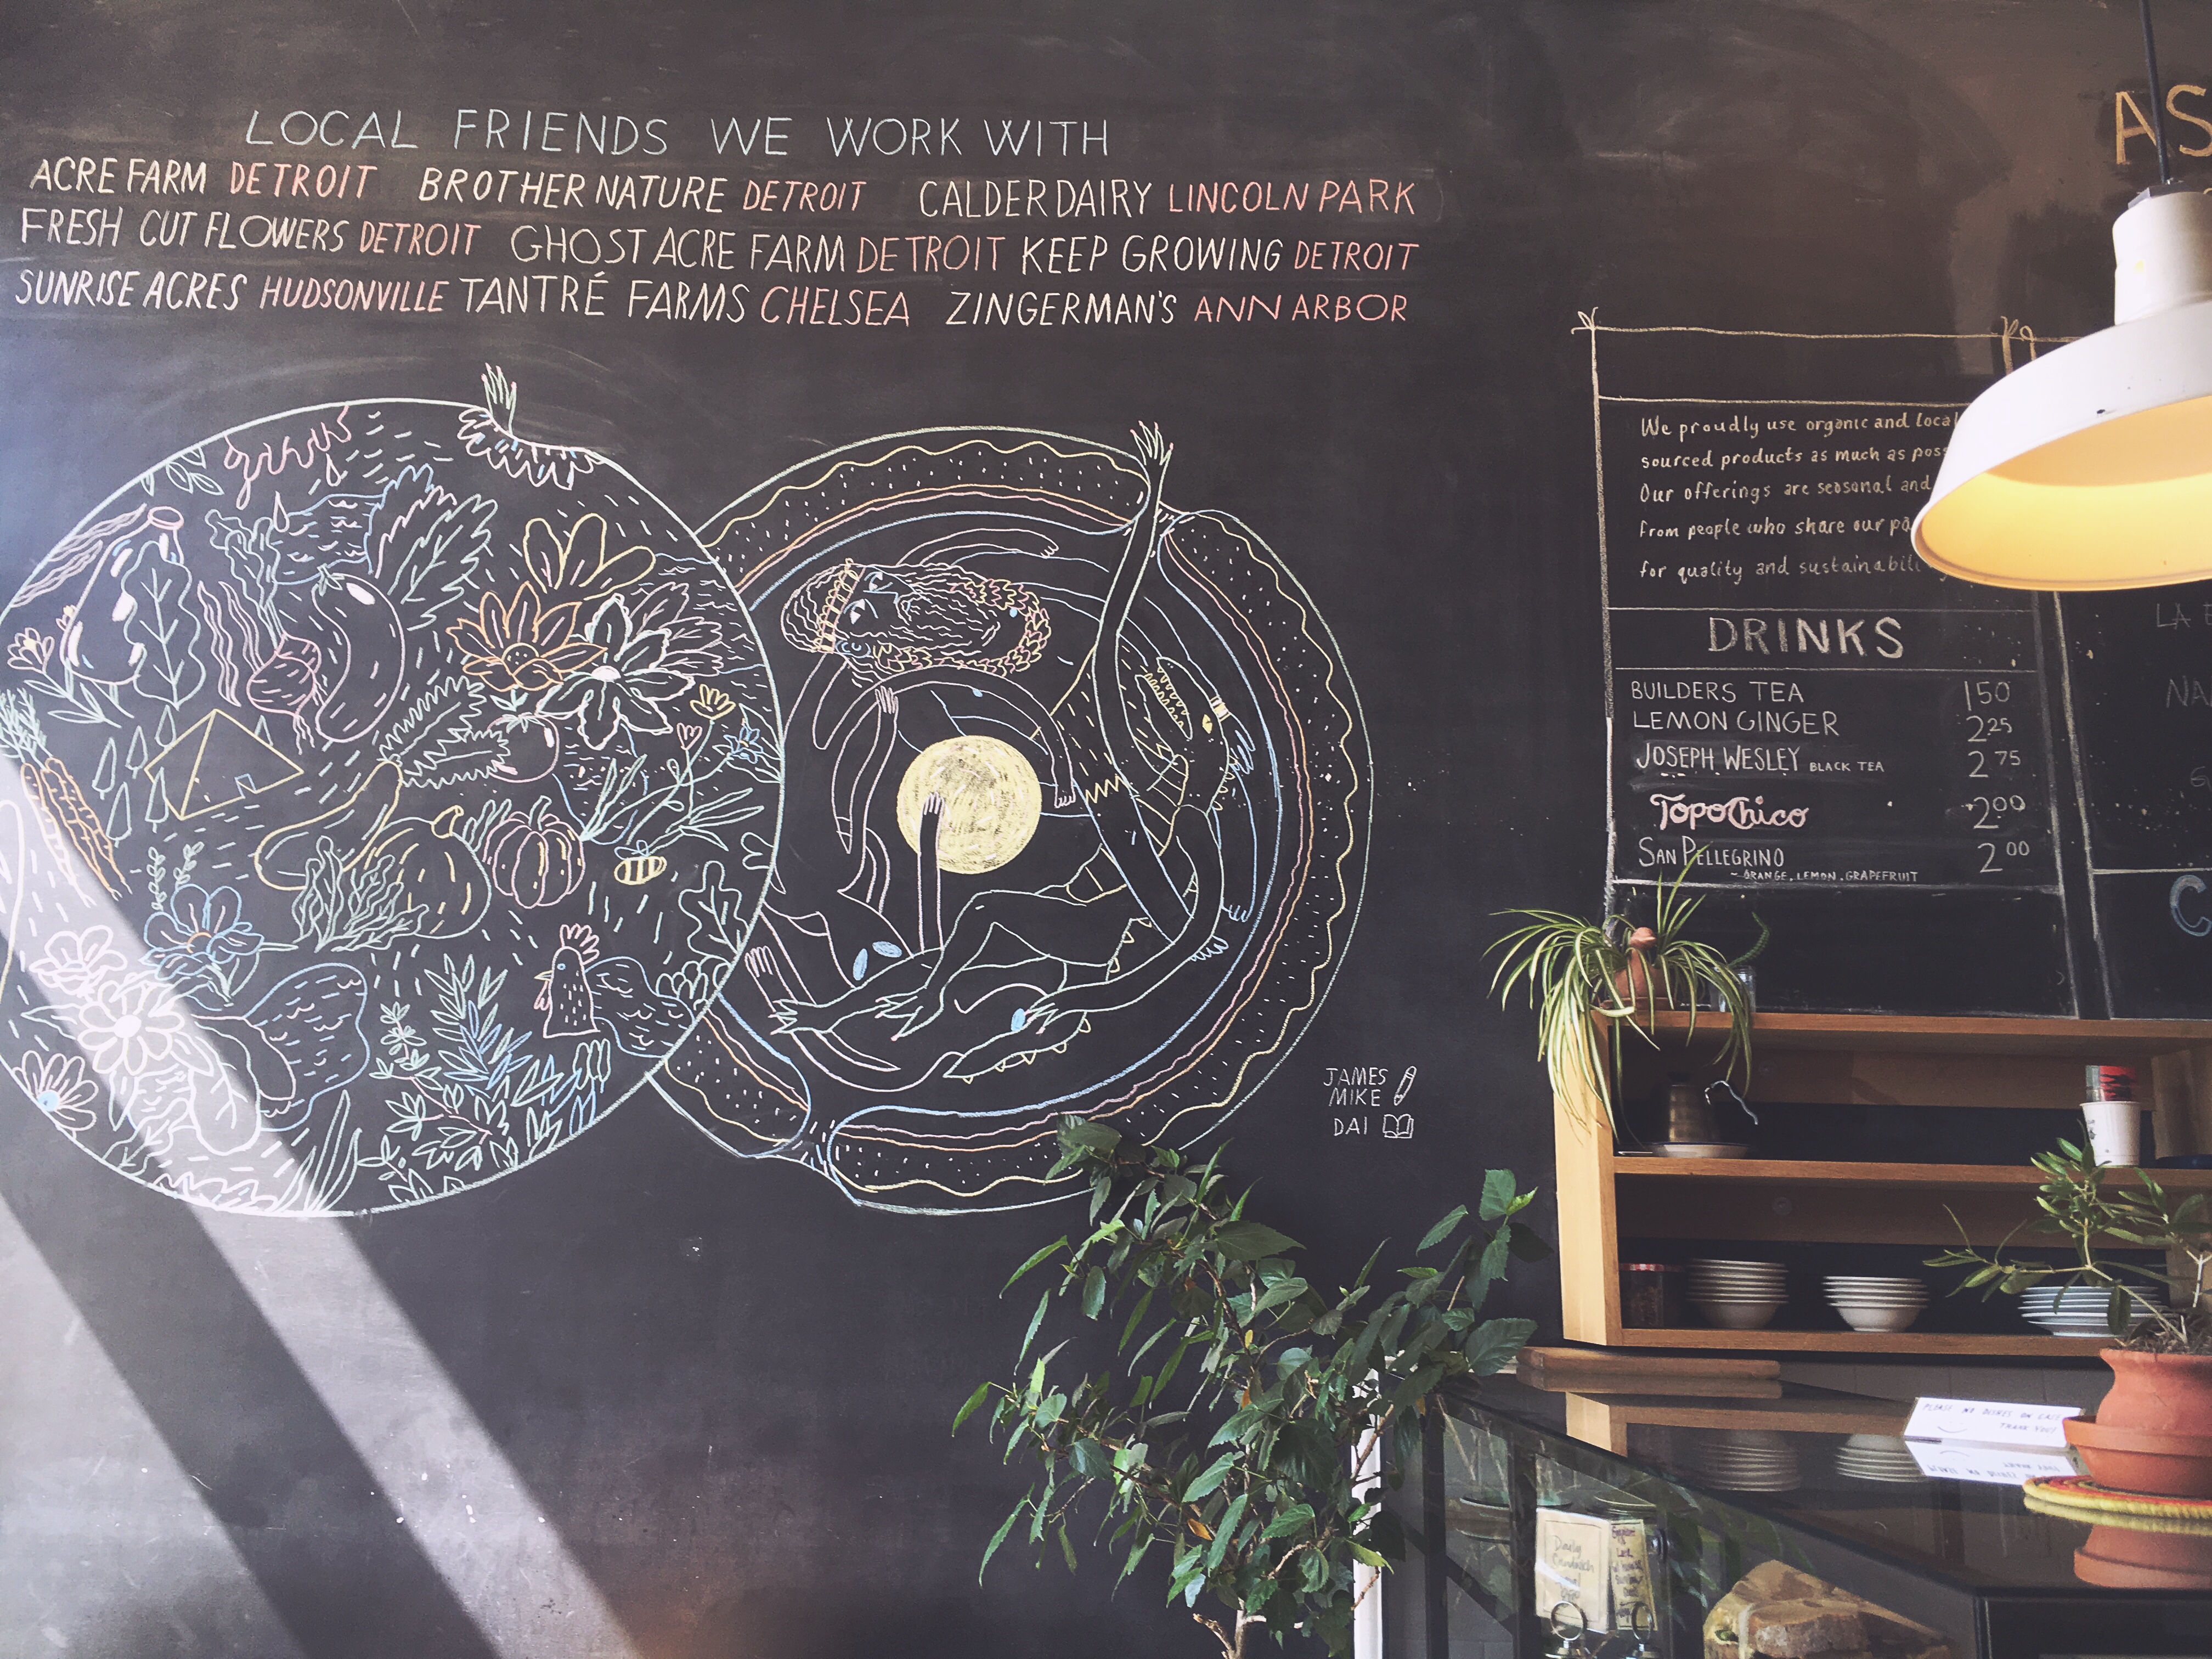 LOCAL FRIENDS WE WORK WITH
ACRE FARM DETROIT BROTHER NATURE DETROIT CALDER DAIRY LINCOLN PARK
FRESH CUT FLOWERS DETROIT GHOST ACRE FARM DETROIT KEEP GROWING DETROIT
SUNRISE ACRES HUDSONVILLE TANTRÉ FARMS CHELSEA ZINGERMAN'S ANN ARBOR
JAMES
MIKE
DAI
AS
We proudly use organic and local
sourced products as much as poss
Our offerings are seasonal and
from people who share our pa
for quality and sustainabili
DRINKS
BUILDERS TEA 150
LEMON GINGER 225
JOSEPH WESLEY BLACK TEA 275
TopoChico 200
SAN PELLEGRINO 200
~ORANGE.LEMON.GRAPEFRUIT
LA
NA
C
PLEASE NO DISHES ON CASE
THANK YOU!
Daily